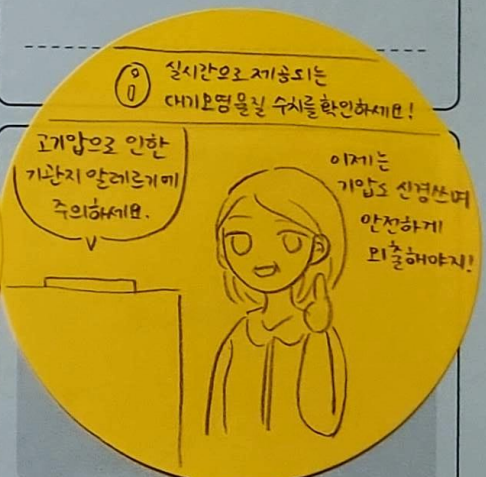 실시간으로 제공되는
대기오염물질 수치를 확인하세요!
고기압으로 인한
기관지 알레르기에
주의하세요.
이제는
기압도 신경쓰며
안전하게
외출해야지!